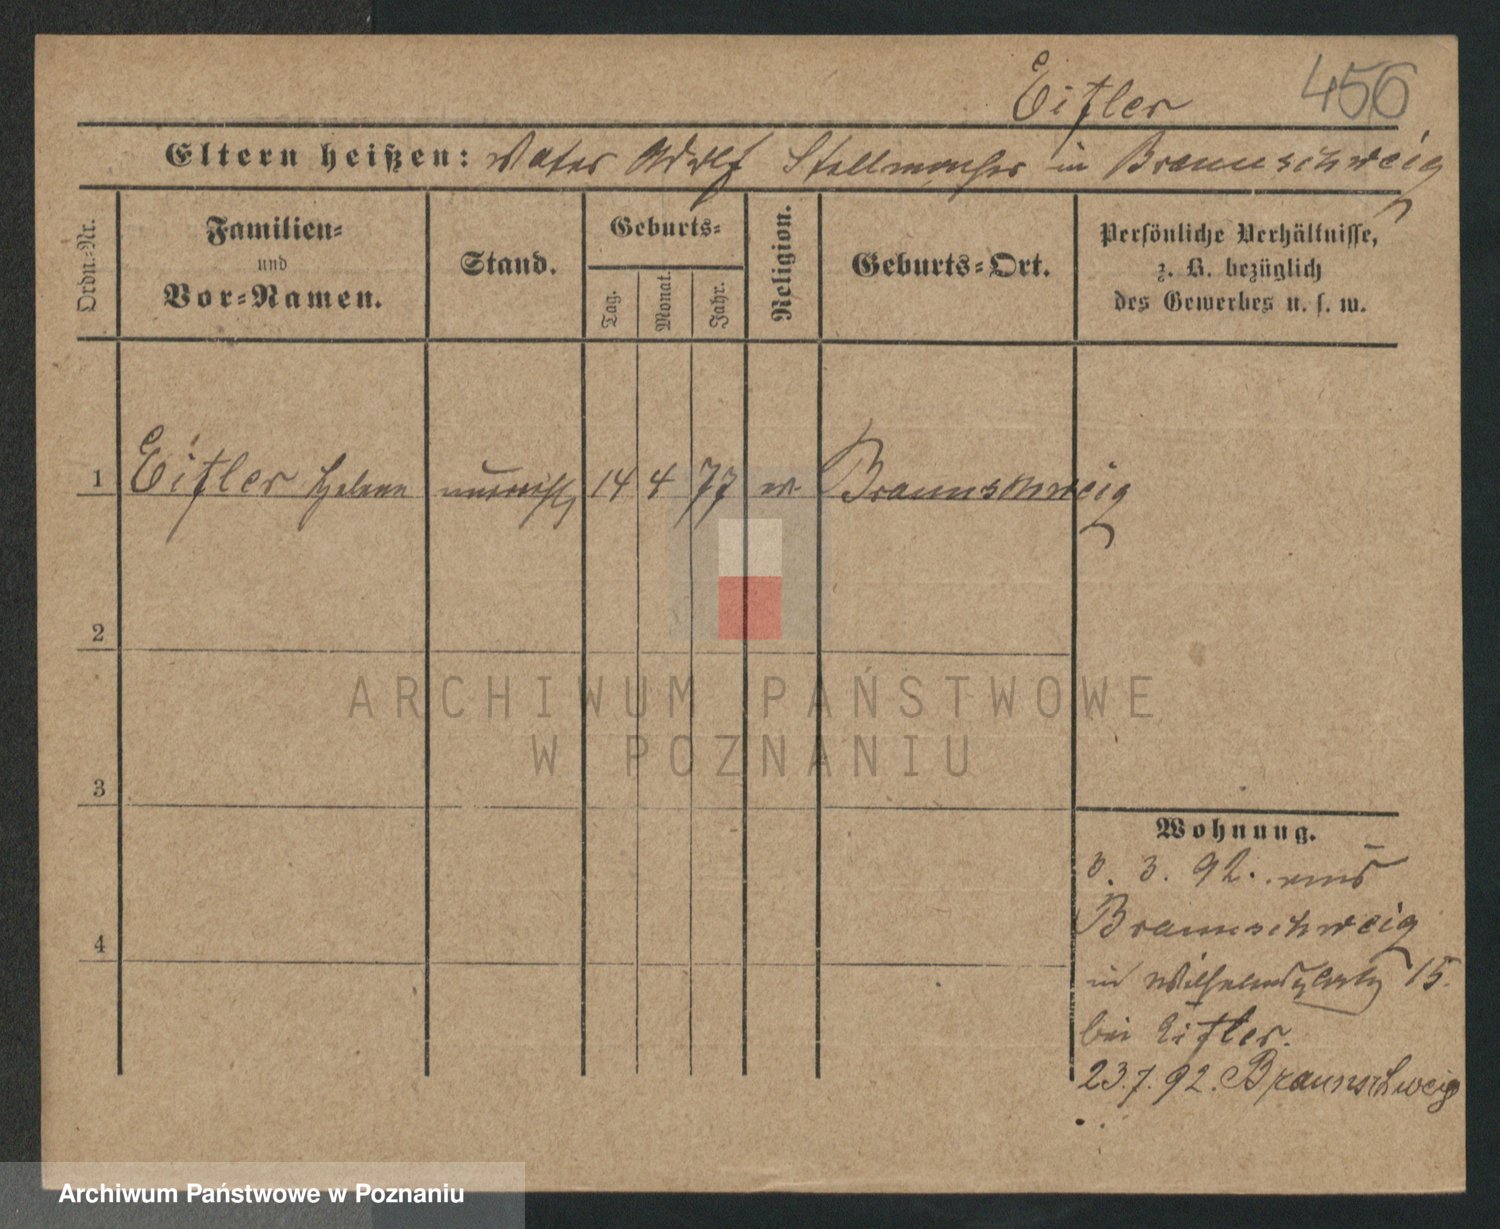 Eitler 456
Eltern heißen: Vater Adolf Stellmacher in Braunschweig
Ordn.-Nr.
Familien-
und
Vor-Namen.
Stand.
Geburts-
Tag.
Monat.
Jahr.
Religion.
Geburts-Ort.
Persönliche Verhältnisse,
z. B. bezüglich
des Gewerbes u. s. w.
1 Eitler Helene 14 4 77 Braunschweig
2
3
4
Wohnung.
3. 3. 92. aus
Braunschweig
in Wilhelmsplatz 15.
bei Eitler.
23.7.92. Braunschweig
ARCHIWUM PAŃSTWOWE
W POZNANIU
Archiwum Państwowe w Poznaniu